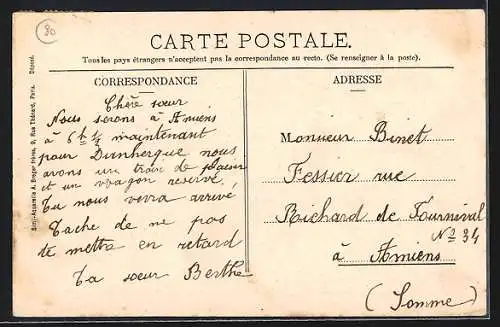 80
CARTE POSTALE.
Tous les pays étrangers n'acceptent pas la correspondance au recto. (Se renseigner à la poste).
CORRESPONDANCE
Chère sœur
Nous serons à Amiens
à 6 h ½ maintenant
pour Dunkerque nous
avons un train de plaisir
et un wagon reservé
Tu nous verra arrivé
Tache de ne pas
te mettre en retard
Ta sœur Berthe
ADRESSE
Monsieur Binet
Fessier rue
Richard de Fournival
No 34
à Amiens
(Somme)
Simi-Aquarelle A. Breger frères, 9, Rue Thénard, Paris. Déposé.